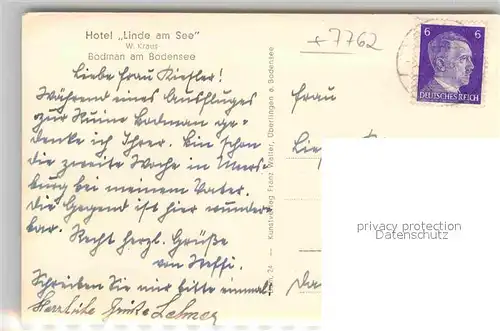 Hotel „Linde am See"
W. Kraus
Bodman am Bodensee
+7762
6 6
DEUTSCHES REICH
Liebe Frau Kiefler!
Während eines Ausfluges
zur Ruine Bodman ge-
denke ich Ihrer. Bin schon
die zweite Woche in Meers-
burg bei meinem Vater.
Die Gegend ist hier wunder-
bar. Recht herzl. Grüße
von Steffi.
Schreiben Sie mir bitte einmal.
Herzliche Grüße
Frau
Kunstverlag Franz Walter, Überlingen a. Bodensee
privacy protection
Datenschutz